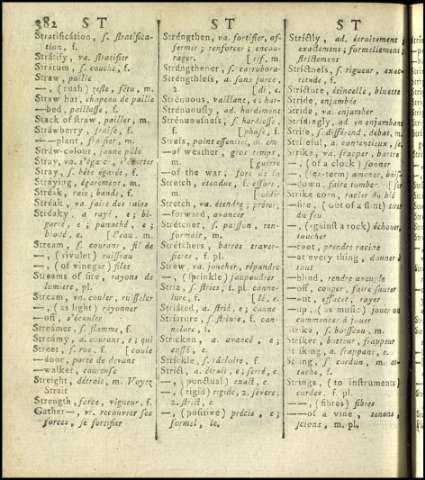 382 S T
S T
S T
Stratification, s. stratifica-
tion, f.
Stratify, va. stratifier
Stratum, s. couche, f.
Straw, paille
—, (rush) zeste, fétu, m.
— hat, chapeau de paille
—bed, paillasse, f.
Stack of straw, pailler, m.
Strawberry, fraise, f.
—plant, fraisier, m.
Straw-colour, jaune pâle
Stray, va. s'égarer, s'écarter
Stray, s. bête égarée, f.
Straying, égarement, m.
Streak, raie; bande, f.
Streak, va. faire des raies
Streaky, a. rayé, e; bi-
garré, e; panaché, e;
[l'eau, m.
Stream, s. courant, fil de
—, (rivulet) ruisseau
—, (of vinegar) filet
Streams of fire, rayons de
lumière, pl.
Stream, vn. couler, ruisseler
—, (as light) rayonner
—off, s'écouler
Streamer, s. flamme, f.
Streamy, a. courant, e; qui
Street, s. rue, f. [coule
—door, porte de devant
—walker, coureuse
Streight, détroit, m. Voyez
Strait
Strength, force, vigueur, f.
Gather—, vr. recouvrer ses
forces, se fortifier
Strengthen, va. fortifier, af-
fermir; renforcer; encou-
rager. [tif, m.
Strengthener, s. corrobora-
Strengthless, a. sans force,
2. [di, e.
Strenuous, vaillant, e; har-
Strenuously, ad. hardiment
Strenuousness, s. hardiesse,
f. [phase, f.
Stress, point essentiel, m. em-
—of weather, gros temps,
m. [guerre
—of the war, fort de la
Stretch, étendue, f. effort,
m. [cédé
Stretch, va. étendre; prêter,
—forward, avancer
Stretcher, s. passon, ren-
formoir, m.
Stretchers, barres traver-
sières, f. pl.
Strew, va. joncher, répandre
—, (sprinkle) saupoudrer
Striæ, s. stries, f. pl. canne-
lure, f. [lé, e.
Striated, a. strié, e; canne
Striature, s. striure, f. can-
nelure, f.
Stricken, a. avancé, e;
cassé, e
Strickle, s. racloire, f.
Strict, a. étroit, e; serré, e.
—, (punctual) exact, e.
—, (rigid) rigide, 2. sévère,
2. strict, e
—, (positive) précis, e;
formel, le,
Strictly, ad. étroitement;
exactement; formellement;
strictement
Strictness, s. rigueur, exac-
titude, f.
Stricture, étincelle, bluette
Stride, enjambée
Stride, va. enjamber
Stridingly, ad. en enjambant
Strife, s. différend, débat, m.
Strifeful, a. contentieux, se,
Strike, va. frapper, battre
—, (of a clock) sonner
—, (sea-term) amener, baisser
—down, faire tomber
Strike corn, racler du blé
—fire, (out of a flint) tirer
du feu
—, (against a rock) échouer,
toucher
—root, prendre racine
—at every thing, donner à
tout
—blind, rendre aveugle
—off, couper, faire sauter
—out, effacer, rayer
—up, (as music) jouer ou
commencer à jouer
Strike, s. boisseau, m.
Striker, batteur, frappeur
Striking, a. frappant, e.
String, s. cordon, m. at-
tache, f.
Strings, (to instruments)
cordes, f. pl.
——, (fibres) fibres
——of a vine,
scions, m. pl.